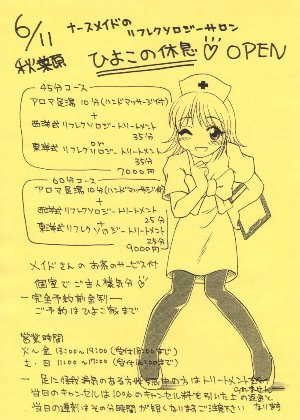 6/11
ナースメイドの
リフレクソロジーサロン
秋葉原 ひよこの休息♡ OPEN
45分コース
アロマ足湯10分(ハンドマッサージ付)
+
西洋式リフレクソロジートリートメント
35分
or
東洋式リフレクソロジートリートメント
35分
7000円
60分コース
アロマ足湯10分(ハンドマッサージ付)
+
西洋式リフレクソロジートリートメント
25分
+
東洋式リフレクソロジートリートメント
25分
9000円
メイドさんのお茶のサービス付
個室でご主人様気分
完全予約前金制
ご予約はひよこ家まで
営業時間
火~金 13:00~19:00 (受付18:00まで)
土・日 11:00~17:00 (受付
足に怪我病のある方 の方はトリートメント
当日のキャンセルは100%のキャンセル料を
当日の遅刻はその分時間が短くなります ご注意